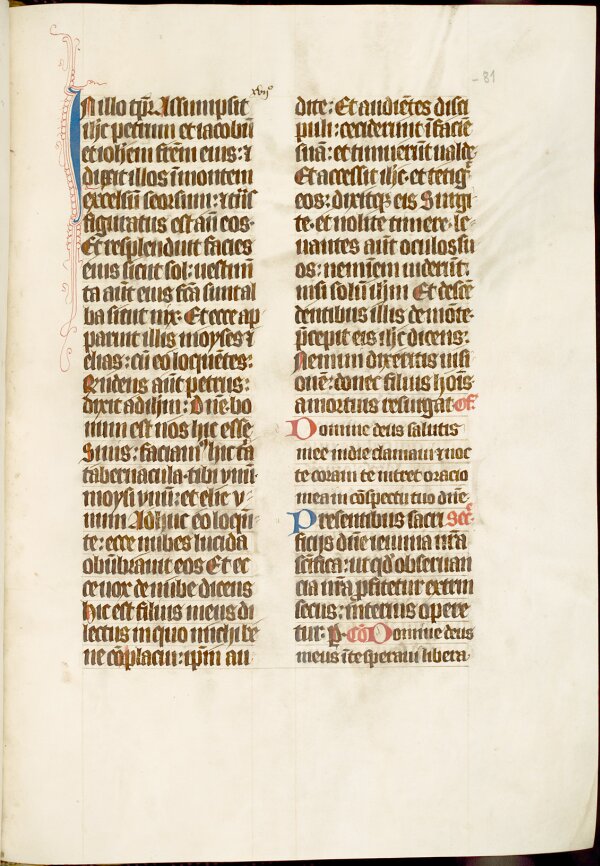 xvijº
81
In illo tp̃r Assumpsit
ih̃c petrum et iacobũ
et ioh̃em fr̃em eius: ⁊
duxit illos ĩ montem
excelsũ seorsum: ⁊ trãs
figuratus est añ eos·
Et resplenduit facies
eius sicut sol: uestim̃
ta aũt eius fc̃a sunt al
ba sicut nix· Et ecce ap
paruit illis moyses ⁊
elias: cũ eo loquẽtes:
Rñdens aũt petrus:
dixit ad ih̃m: Dñe bo
num est nos hic esse
Si uis: faciamꝰ hic t̃ra
tabernacula· tibi vnũ·
moysi vnũ: et elie v
num Adhuc eo loquẽ
te: ecce nubes lucida
obũbrauit eos Et ec
ce uox de nube dicens
hic est filius meus di
lectus in quo michi be
ne cõplacui: ip̃m au
dite: Et audiẽtes disci
puli: ceciderunt ĩ faciẽ
suã: et timuerũt ualde·
Et accessit ih̃c· et tetigᵗ
eos: dixitqꝫ eis Surgi
te· et nolite timere· le
uantes aũt oculos su
os: neminem uiderũt:
nisi solũ ih̃m Et descẽ
dentibus illis de mõte·
p̃cepit eis ih̃c dicens:
Nemini dixeritis uisi
onẽ: donec filius hoĩs
a mortuis resurgat· Of̃.
Domine deus salutis
mee in die clamaui ⁊ noc
te coram te intret oracio
mea in cõspectu tuo dñe·
Presentibus sacri Sec̃.
ficijs dñe ieiunia nr̃a
sc̃ifica: ut qd̾ obseruan
cia nr̃a ꝓfitetur extrin
secus: interius opere
tur· p̱· Cõ Domine deus
meus ĩ te speraui libera